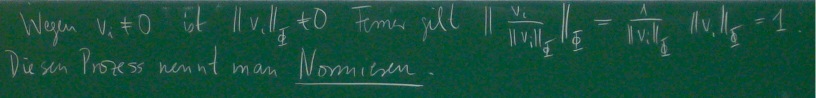 Wegen vᵢ ≠ 0 ist ‖vᵢ‖_Φ ≠ 0 Ferner gilt ‖ vᵢ / ‖vᵢ‖_Φ ‖_Φ = 1 / ‖vᵢ‖_Φ ‖vᵢ‖_Φ = 1.
Diesen Prozess nennt man Normieren.